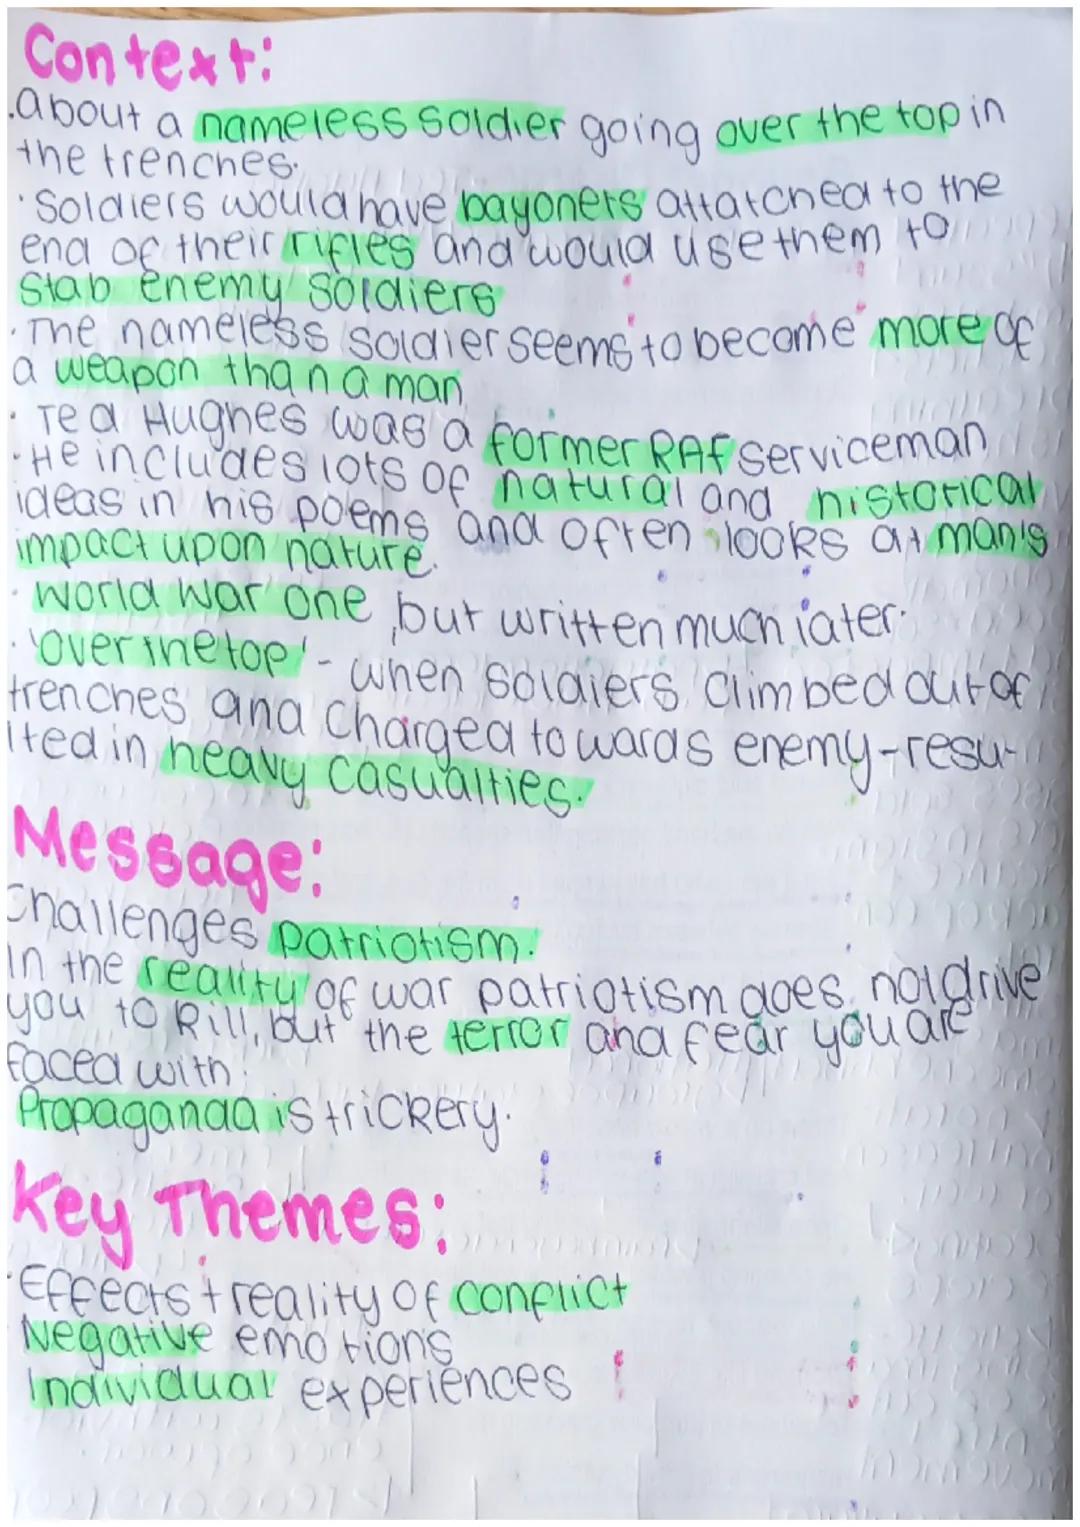 Context:
.About a nameless soldier going over the top in
the trenches.
· Soldiers would have bayonets attatched to the
end of their rifles and would use them to
stab enemy soldiers
· The nameless soldier seems to become more of
a weapon than a man
· Ted Hughes was a former RAF serviceman
· He includes lots of natural and historical
ideas in his poems and often looks at man's
impact upon nature.
· World War One, but written much later.
· 'Over the top' - when soldiers climbed out of
trenches and charged towards enemy - resu-
lted in heavy casualties.
Message:
Challenges patriotism.
In the reality of war patriotism does not drive
you to kill, but the terror and fear you are
faced with.
Propaganda is trickery.
Key Themes:
· Effects + reality of conflict
Negative emotions
Individual experiences